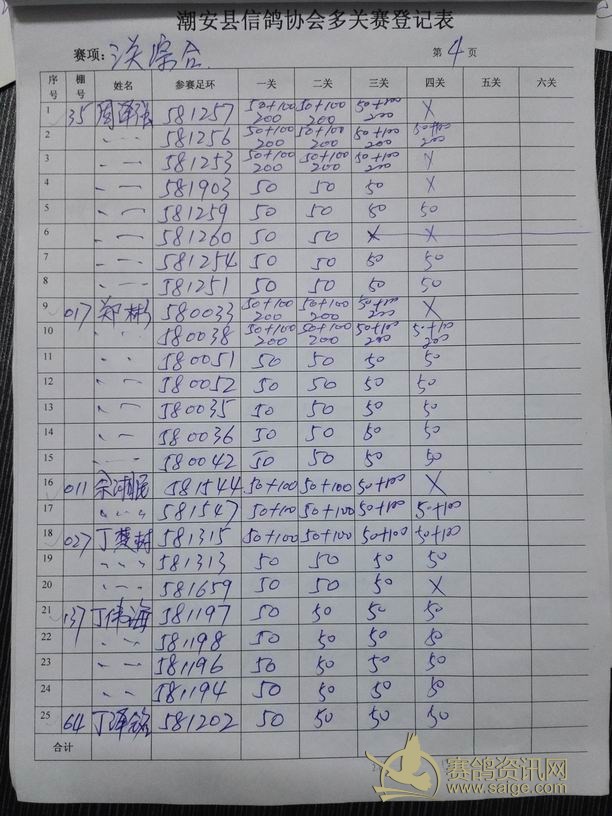 潮安县信鸽协会多关赛登记表
赛项: 综合 第 4 页
序号 棚号 姓名 参赛足环 一关 二关 三关 四关 五关 六关
1 35 581257 50+100 200 50+100 200 50+100 200 X
2 〃 581256 50+100 200 50+100 200 50+100 200 50+100 200
3 〃 581253 50+100 200 50+100 200 50+100 200 X
4 〃 581903 50 50 50 X
5 〃 581259 50 50 50 50
6 〃 581260 50 50 X X
7 〃 581254 50 50 50 50
8 〃 581251 50 50 50 50
9 017 郑彬 580033 50+100 200 50+100 200 50+100 200 X
10 〃 580038 50+100 200 50+100 200 50+100 200 50+100 200
11 〃 580051 50 50 50 50
12 〃 580052 50 50 50 50
13 〃 580035 50 50 50 50
14 〃 580036 50 50 50 50
15 〃 580042 50 50 50 50
16 011 581544 50+100 50+100 50+100 X
17 〃 581547 50+100 50+100 50+100 50+100
18 027 581315 50+100 50+100 50+100 50+100
19 〃 581313 50 50 50 50
20 〃 581659 50 50 50 X
21 137 丁伟海 581197 50 50 50 50
22 〃 581198 50 50 50 50
23 〃 581196 50 50 50 50
24 〃 581194 50 50 50 50
25 64 丁泽 581202 50 50 50 50
合计
赛鸽资讯网
www.saige.com